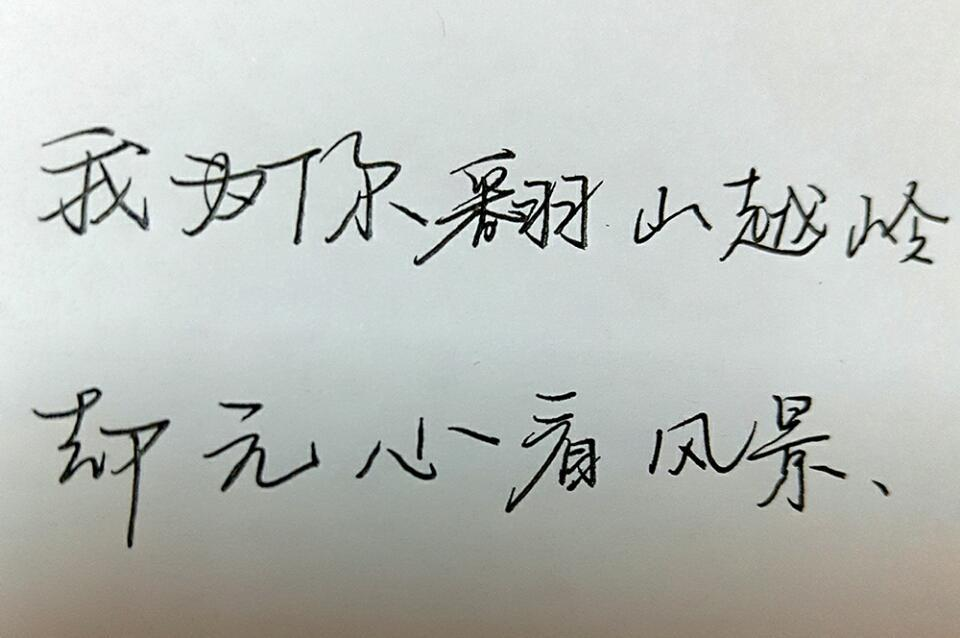 我为你翻山越岭
却无心看风景、